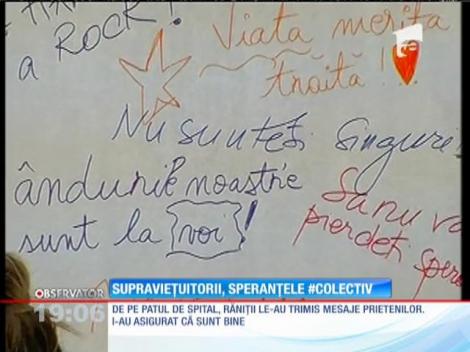 a ROCK!
Viata merita
trăită!
Nu sunteti singuri
ândurile noastre
sunt la voi!
Sa nu va
pierdeti spera
OBSERVATOR
19:06
SUPRAVIEȚUITORII, SPERANȚELE #COLECTIV
DE PE PATUL DE SPITAL, RĂNIȚII LE-AU TRIMIS MESAJE PRIETENILOR.
I-AU ASIGURAT CĂ SUNT BINE